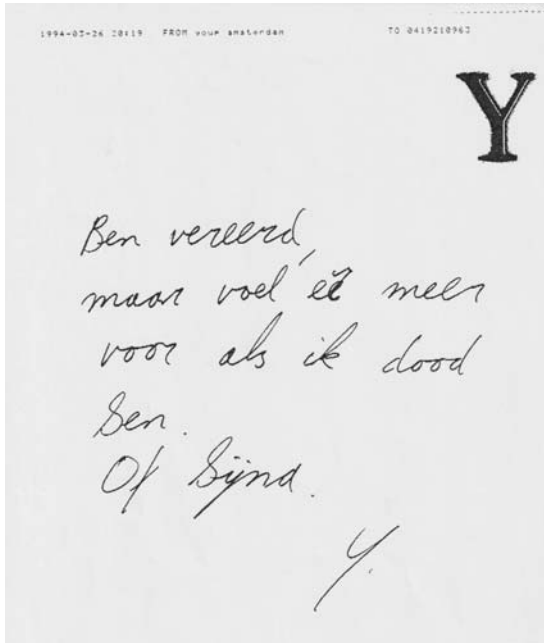 1994-03-26 20:19 FROM your amsterdam TO 0419210963
Y
Ben vereerd,
maar voel er meer
voor als ik dood
ben.
Of bijna.
Y.